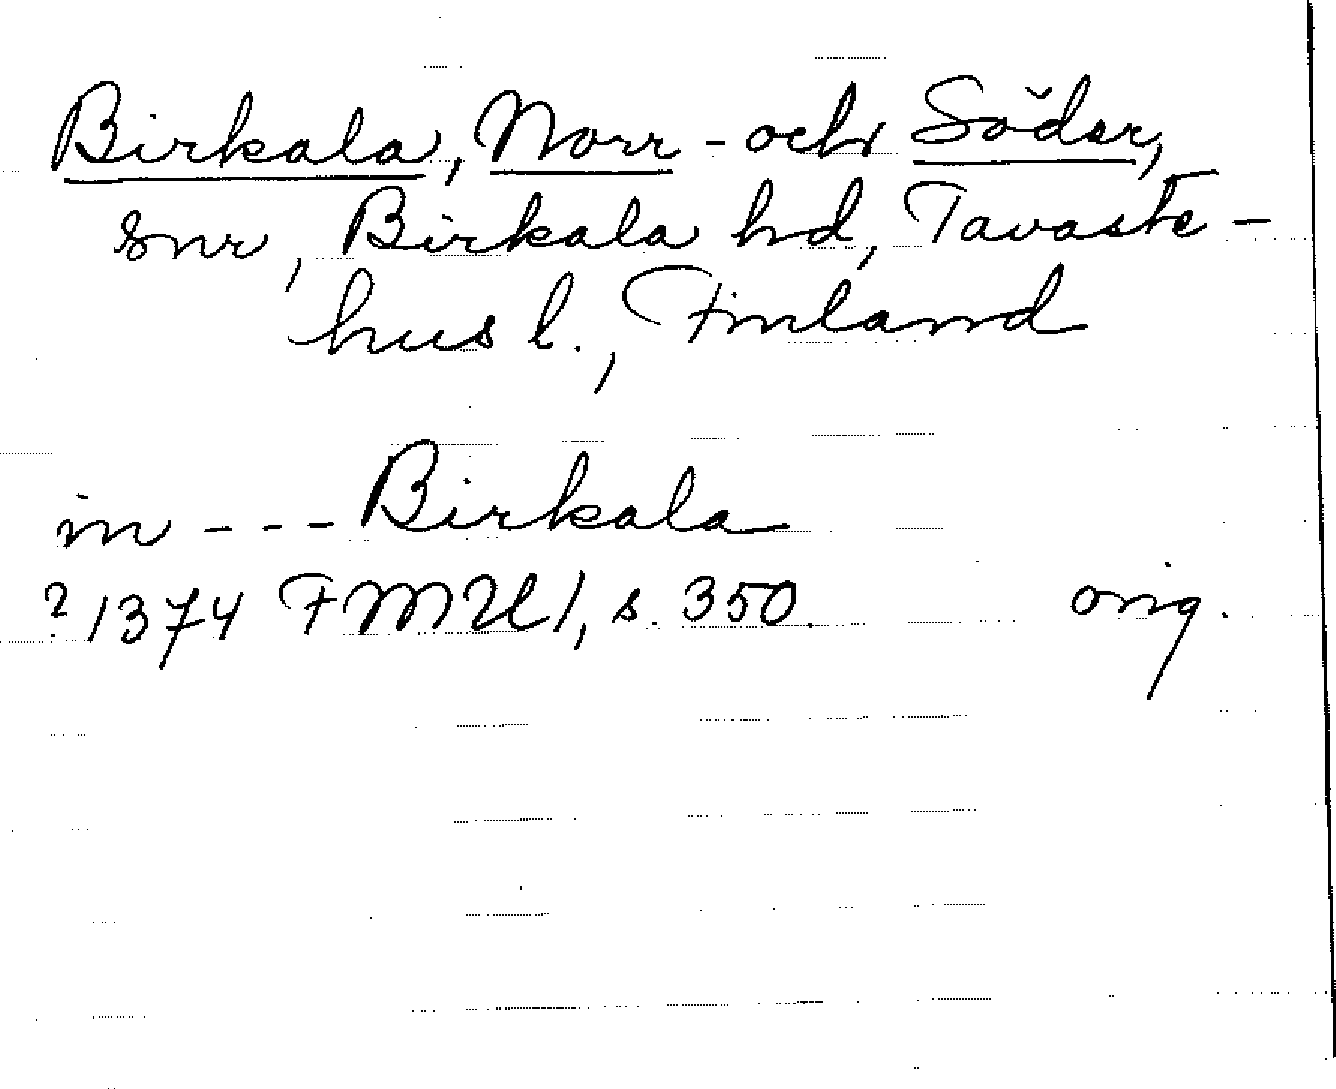 Birkala, Norr- och Söder,
snr, Birkala hd, Tavaste-
hus l., Finland
in --- Birkala
? 1374 FMU I, s. 350. orig.